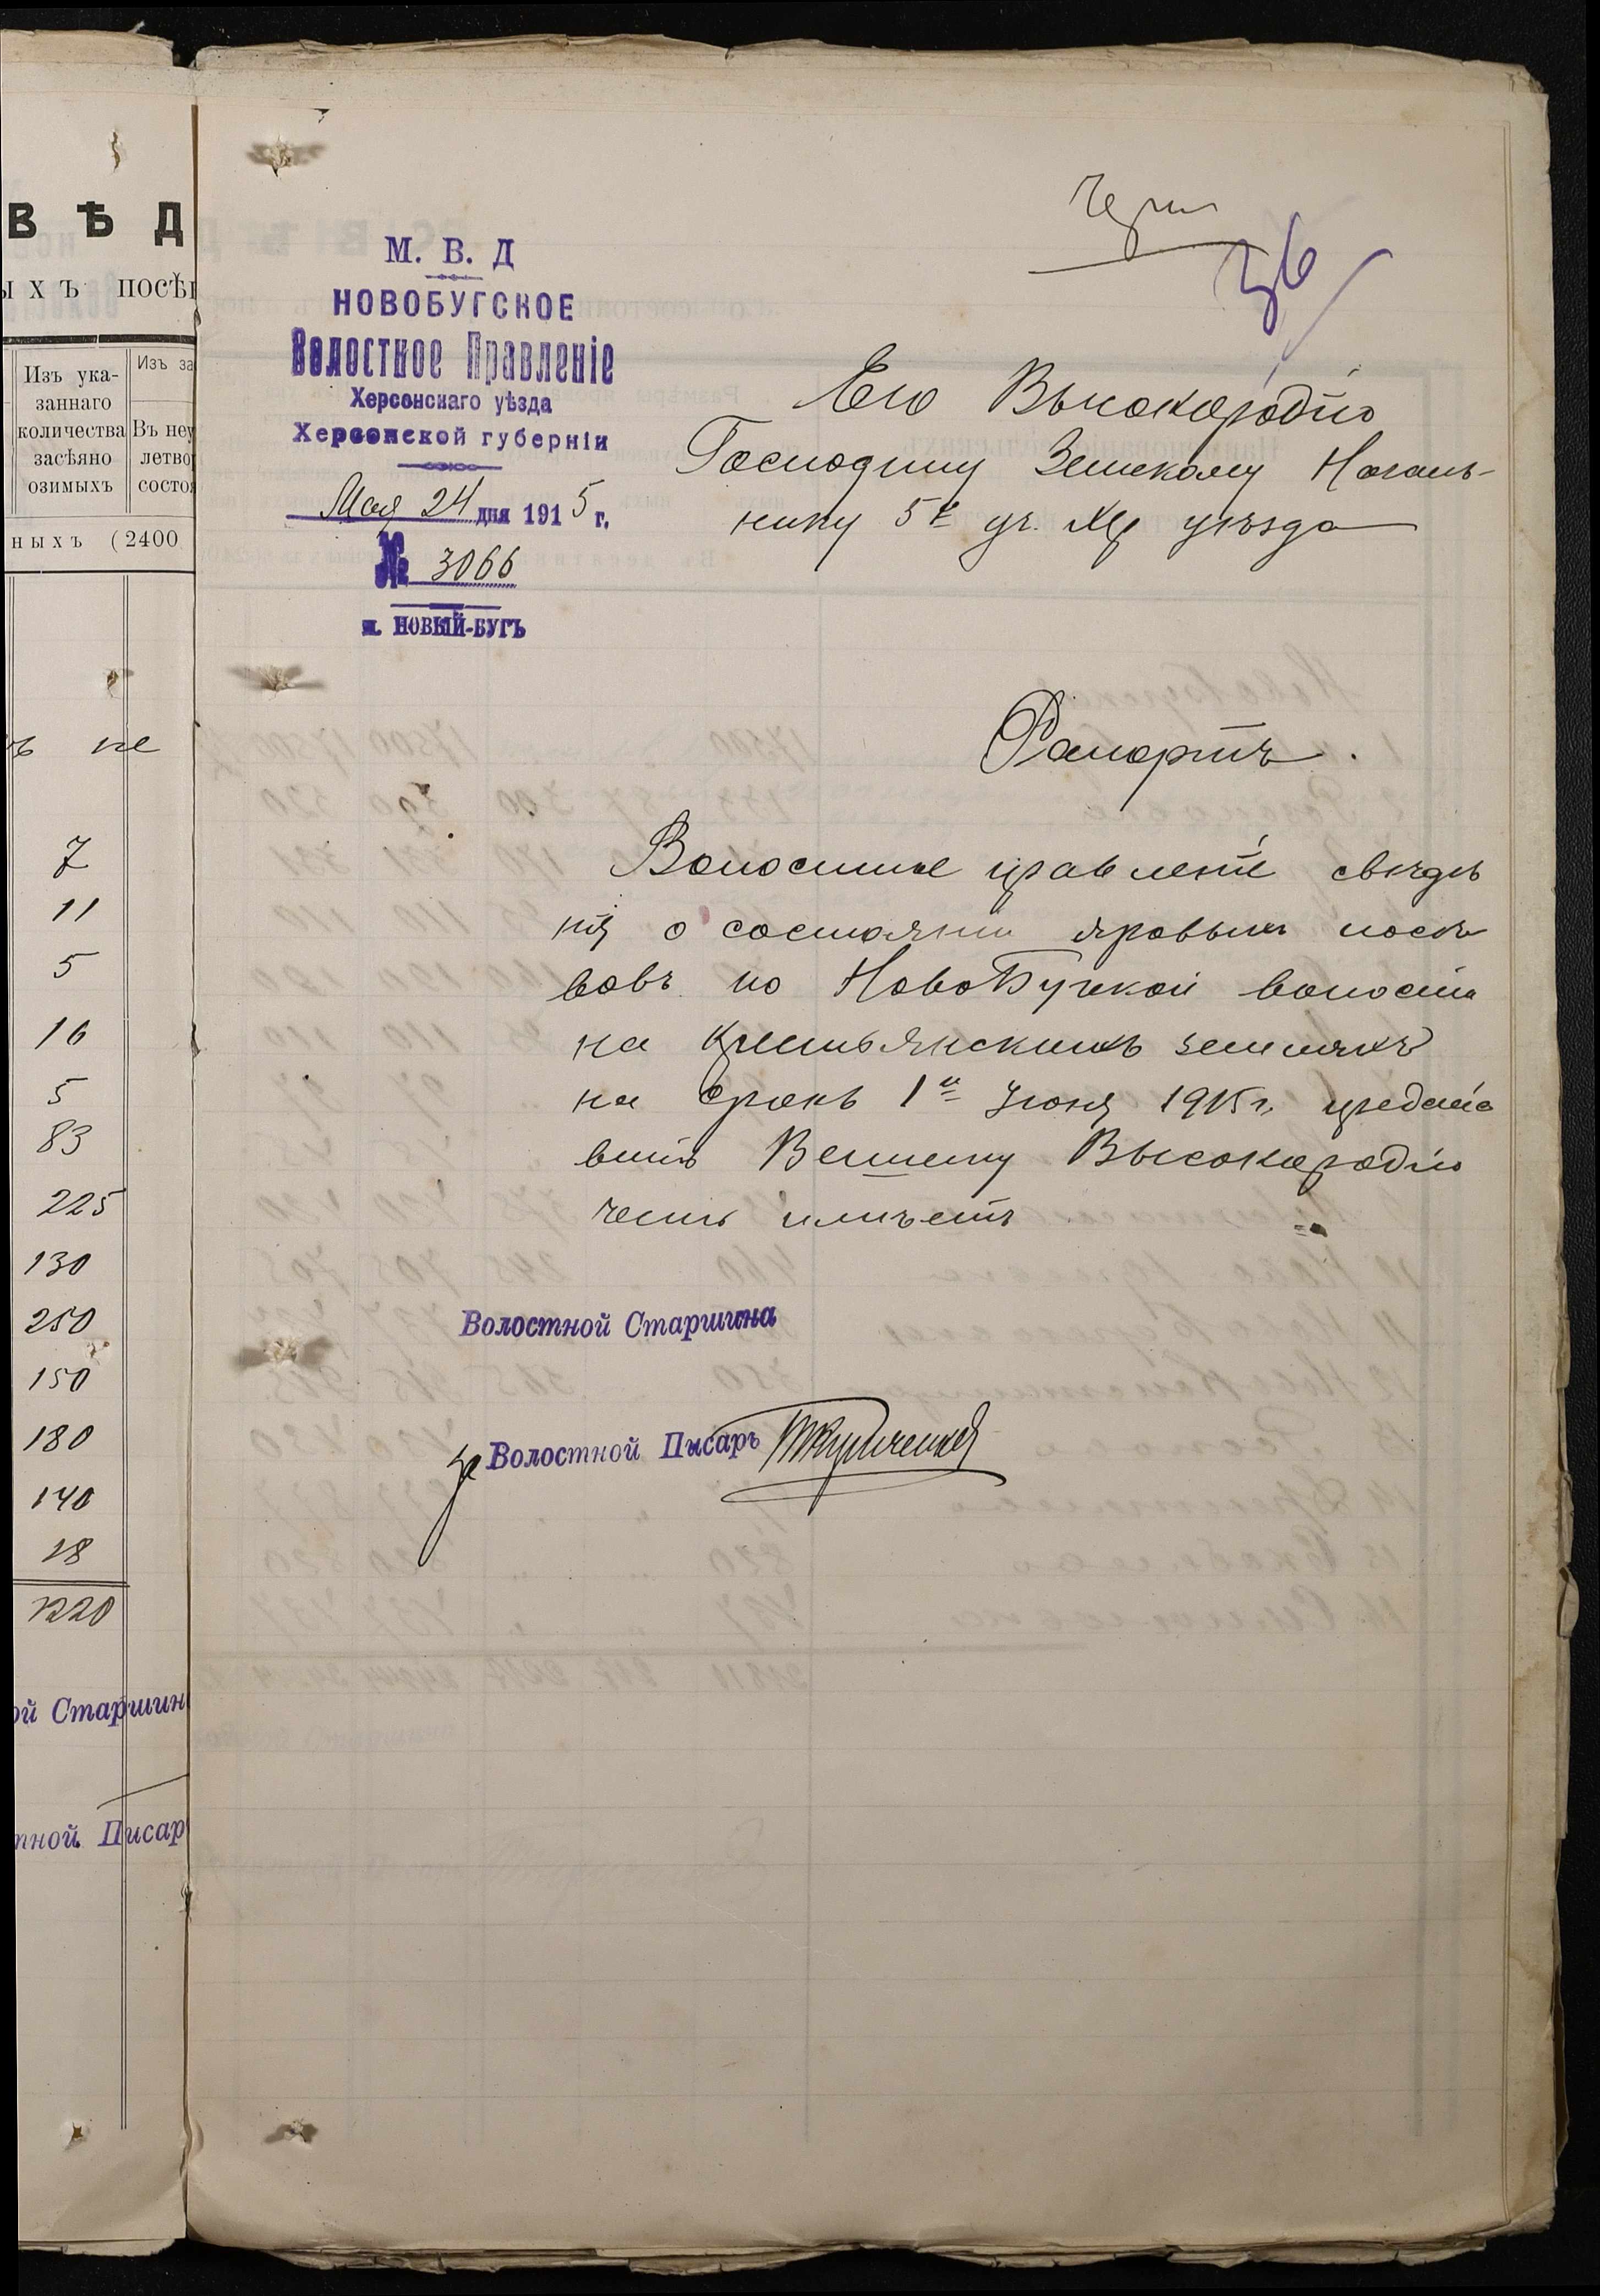 В Ѣ Д
ЫХЪ ПОСѢ
Изъ ука-
заннаго
количества
засѣяно
озимыхъ
Изъ за
Въ неу
летво
состо
ныхъ (2400
не
7
11
5
16
5
83
225
130
250
150
180
140
18
1220
ой Старшин
тной Писар
36
М. В. Д
НОВОБУГСКОЕ
Волостное Правленіе
Херсонскаго уѣзда
Херсонской губерніи
Мая 24 дня 1915 г.
№ 3066
м. НОВЫЙ-БУГЪ
Его Высокородію
Господину Земскому Началь-
нику 5 уч. Хер уѣзда
Рапортъ.
Волостное правленіе свѣдѣ
нія о состояніи яровыхъ посѣ
вовъ по НовоБугской волости
на крестьянскихъ земляхъ
на срокъ 1е Іюня 1915 г. предста
вить Вашему Высокородію
честь имѣетъ
Волостной Старшина
За Волостной Писарь